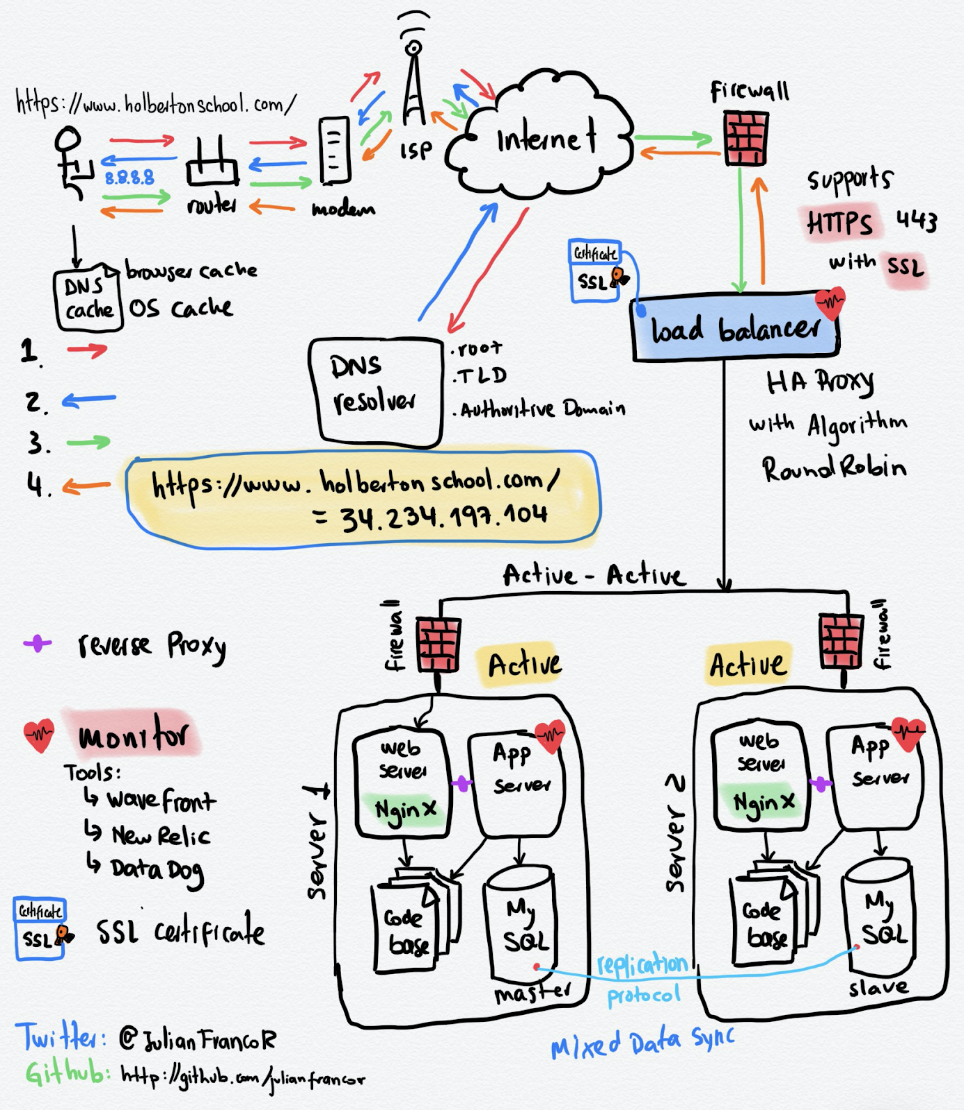 https://www.holbertonschool.com/
8.8.8.8
router
modem
ISP
Internet
firewall
supports
HTTPS 443
with SSL
DNS
cache
browser cache
OS cache
Certificate
SSL
load balancer
HA Proxy
with Algorithm
RoundRobin
1.
2.
3.
4.
DNS
resolver
.root
.TLD
.Authoritive Domain
https://www.holbertonschool.com/
= 34.234.197.104
Active - Active
firewall
Active
Active
firewall
reverse Proxy
monitor
Tools:
↳ WaveFront
↳ New Relic
↳ DataDog
Certificate
SSL
SSL certificate
Server 1
web
server
NginX
App
server
Code
base
My
SQL
master
Server 2
web
server
NginX
App
server
Code
base
My
SQL
slave
replication
protocol
Mixed Data Sync
Twitter: @JulianFrancoR
Github: http://github.com/julianfrancor